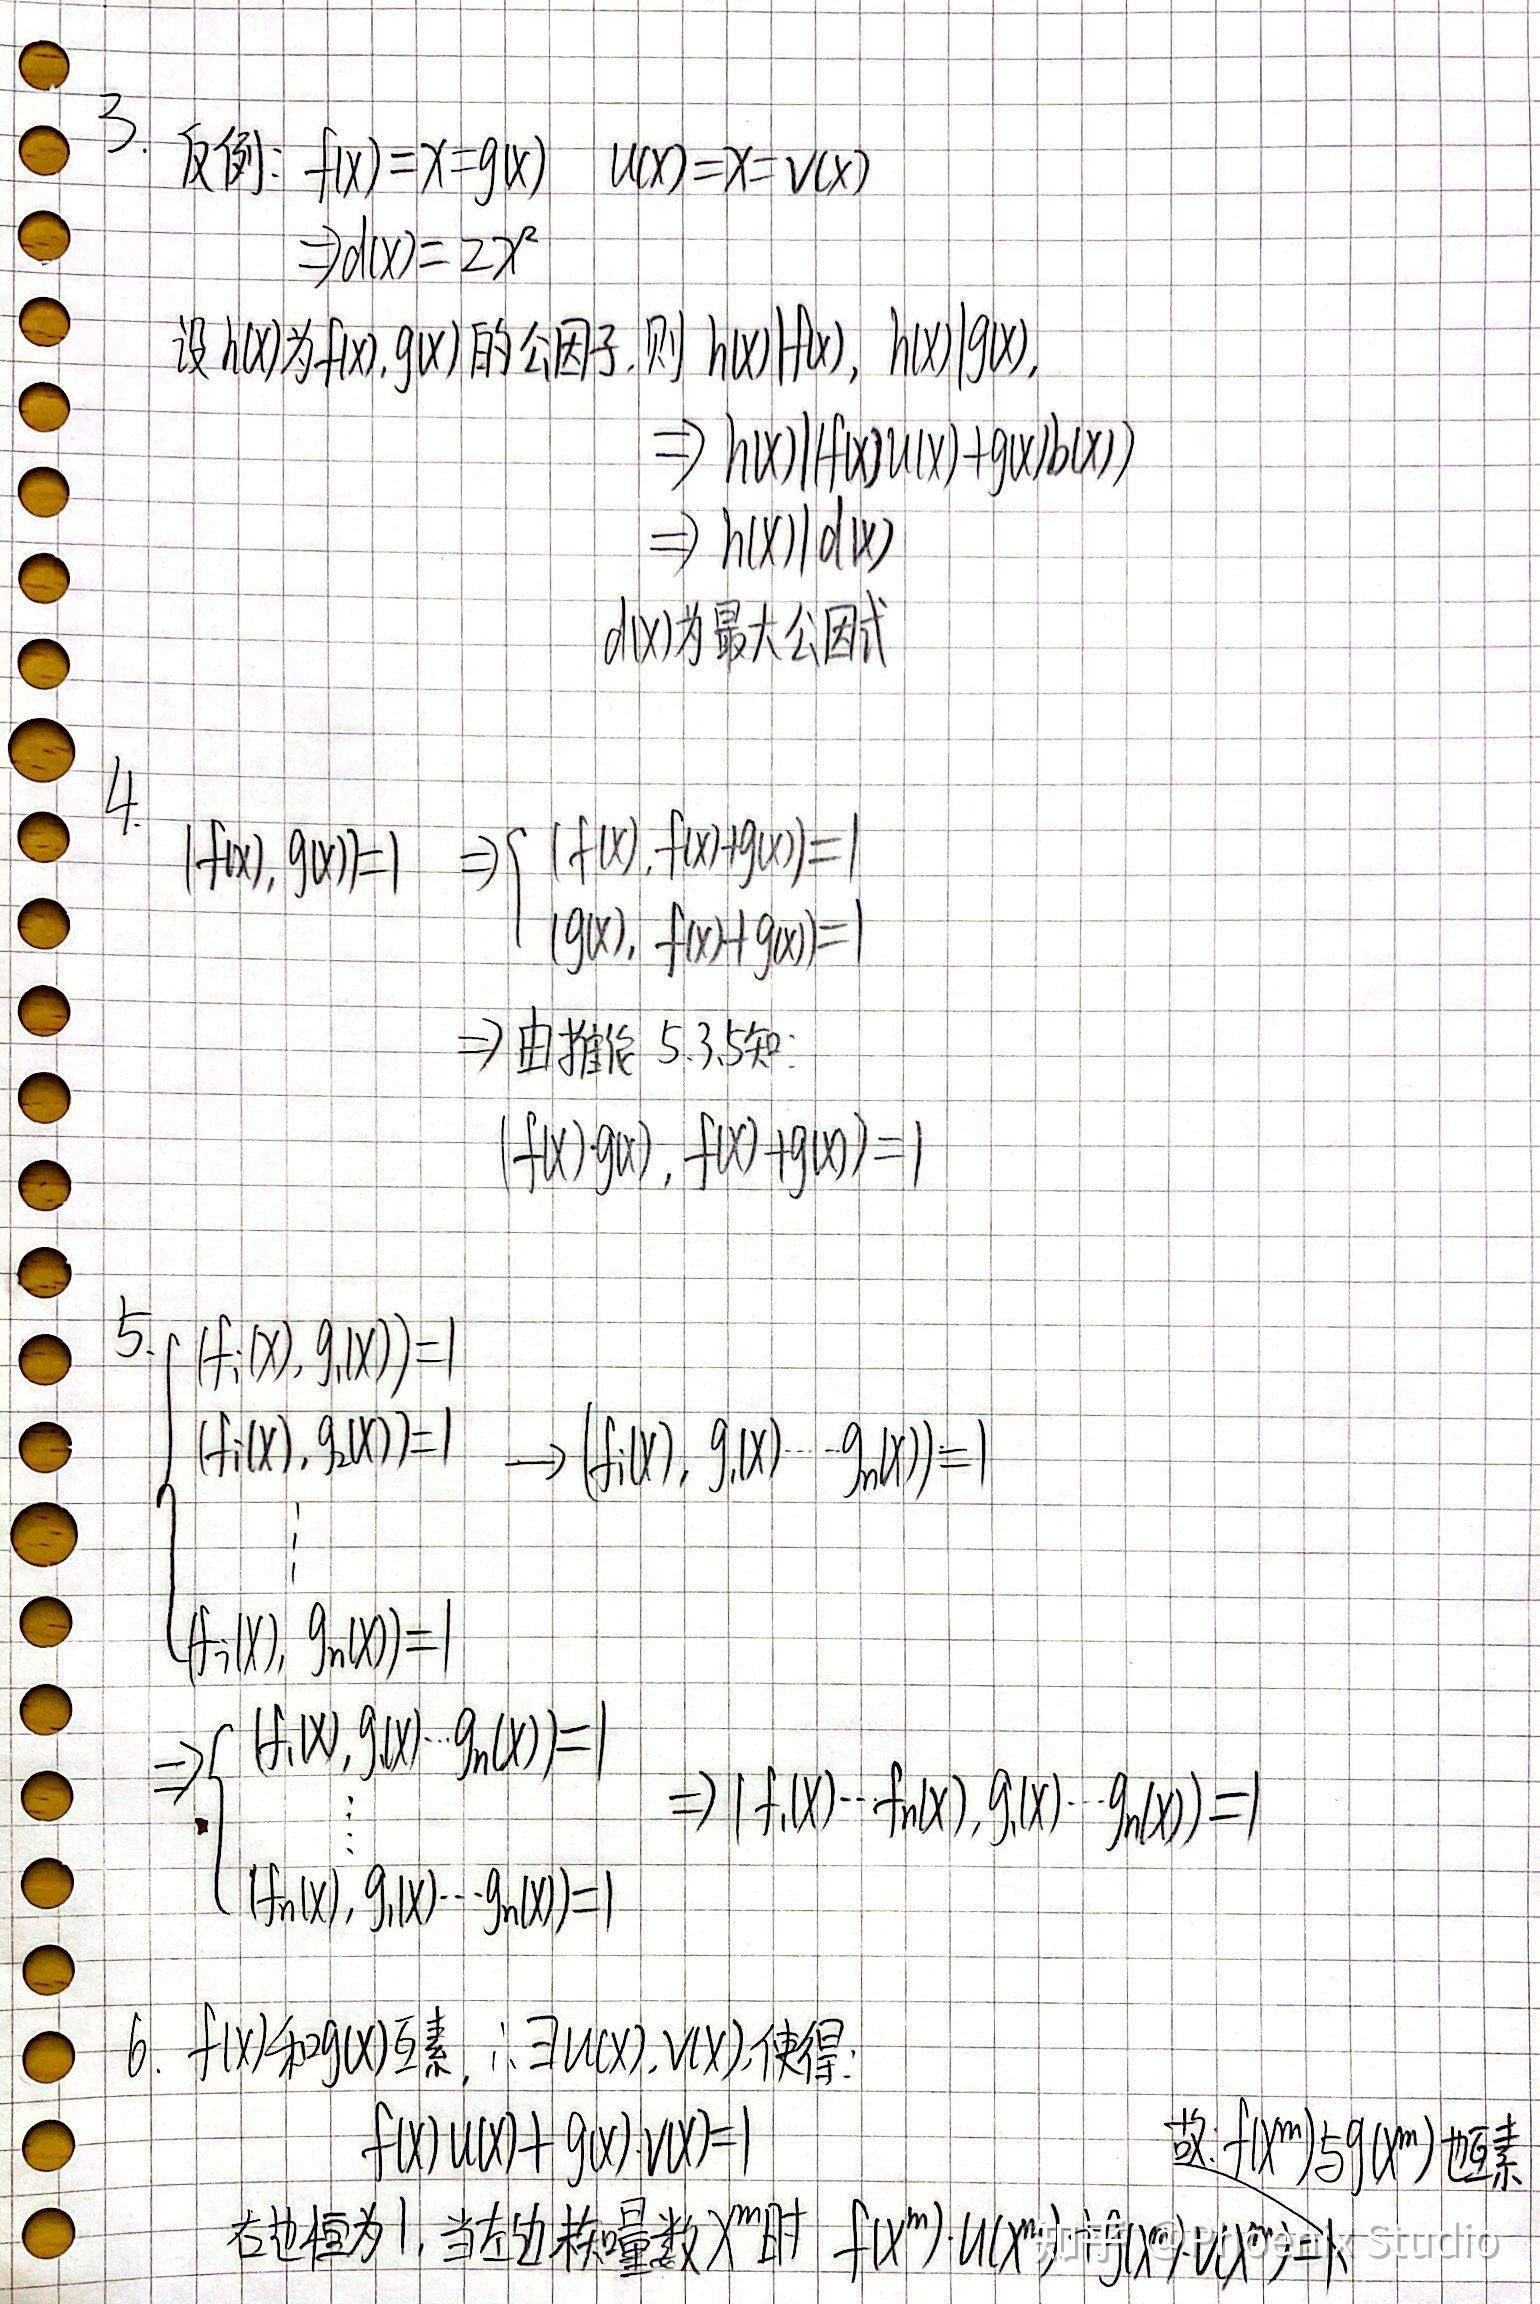 3. 反例: f(x)=x=g(x) u(x)=x=v(x)
⇒d(x)=2x²
设h(x)为f(x),g(x)的公因子.则 h(x)|f(x), h(x)|g(x),
⇒ h(x)|(f(x)u(x)+g(x)b(x))
⇒ h(x)|d(x)
d(x)为最大公因式
4.
(f(x), g(x))=1 ⇒{ (f(x), f(x)+g(x))=1
(g(x), f(x)+g(x))=1
⇒由推论 5.3.5知:
(f(x)·g(x), f(x)+g(x))=1
5. { (fᵢ(x), g₁(x))=1
(fᵢ(x), g₂(x))=1 → (fᵢ(x), g₁(x)⋯gₙ(x))=1
⋮
(fᵢ(x), gₙ(x))=1
⇒{ (f₁(x), g₁(x)⋯gₙ(x))=1
⋮ ⇒(f₁(x)⋯fₙ(x), g₁(x)⋯gₙ(x))=1
(fₙ(x), g₁(x)⋯gₙ(x))=1
6. f(x)和g(x)互素, ∴∃u(x),v(x),使得:
f(x)u(x)+g(x)·v(x)=1
故: f(xᵐ)与g(xᵐ)也互素
右边恒为1, 当左边 量数xᵐ时 f(xᵐ)·u(xᵐ)+g(xᵐ)·v(xᵐ)=1
知乎 @Phoenix Studio